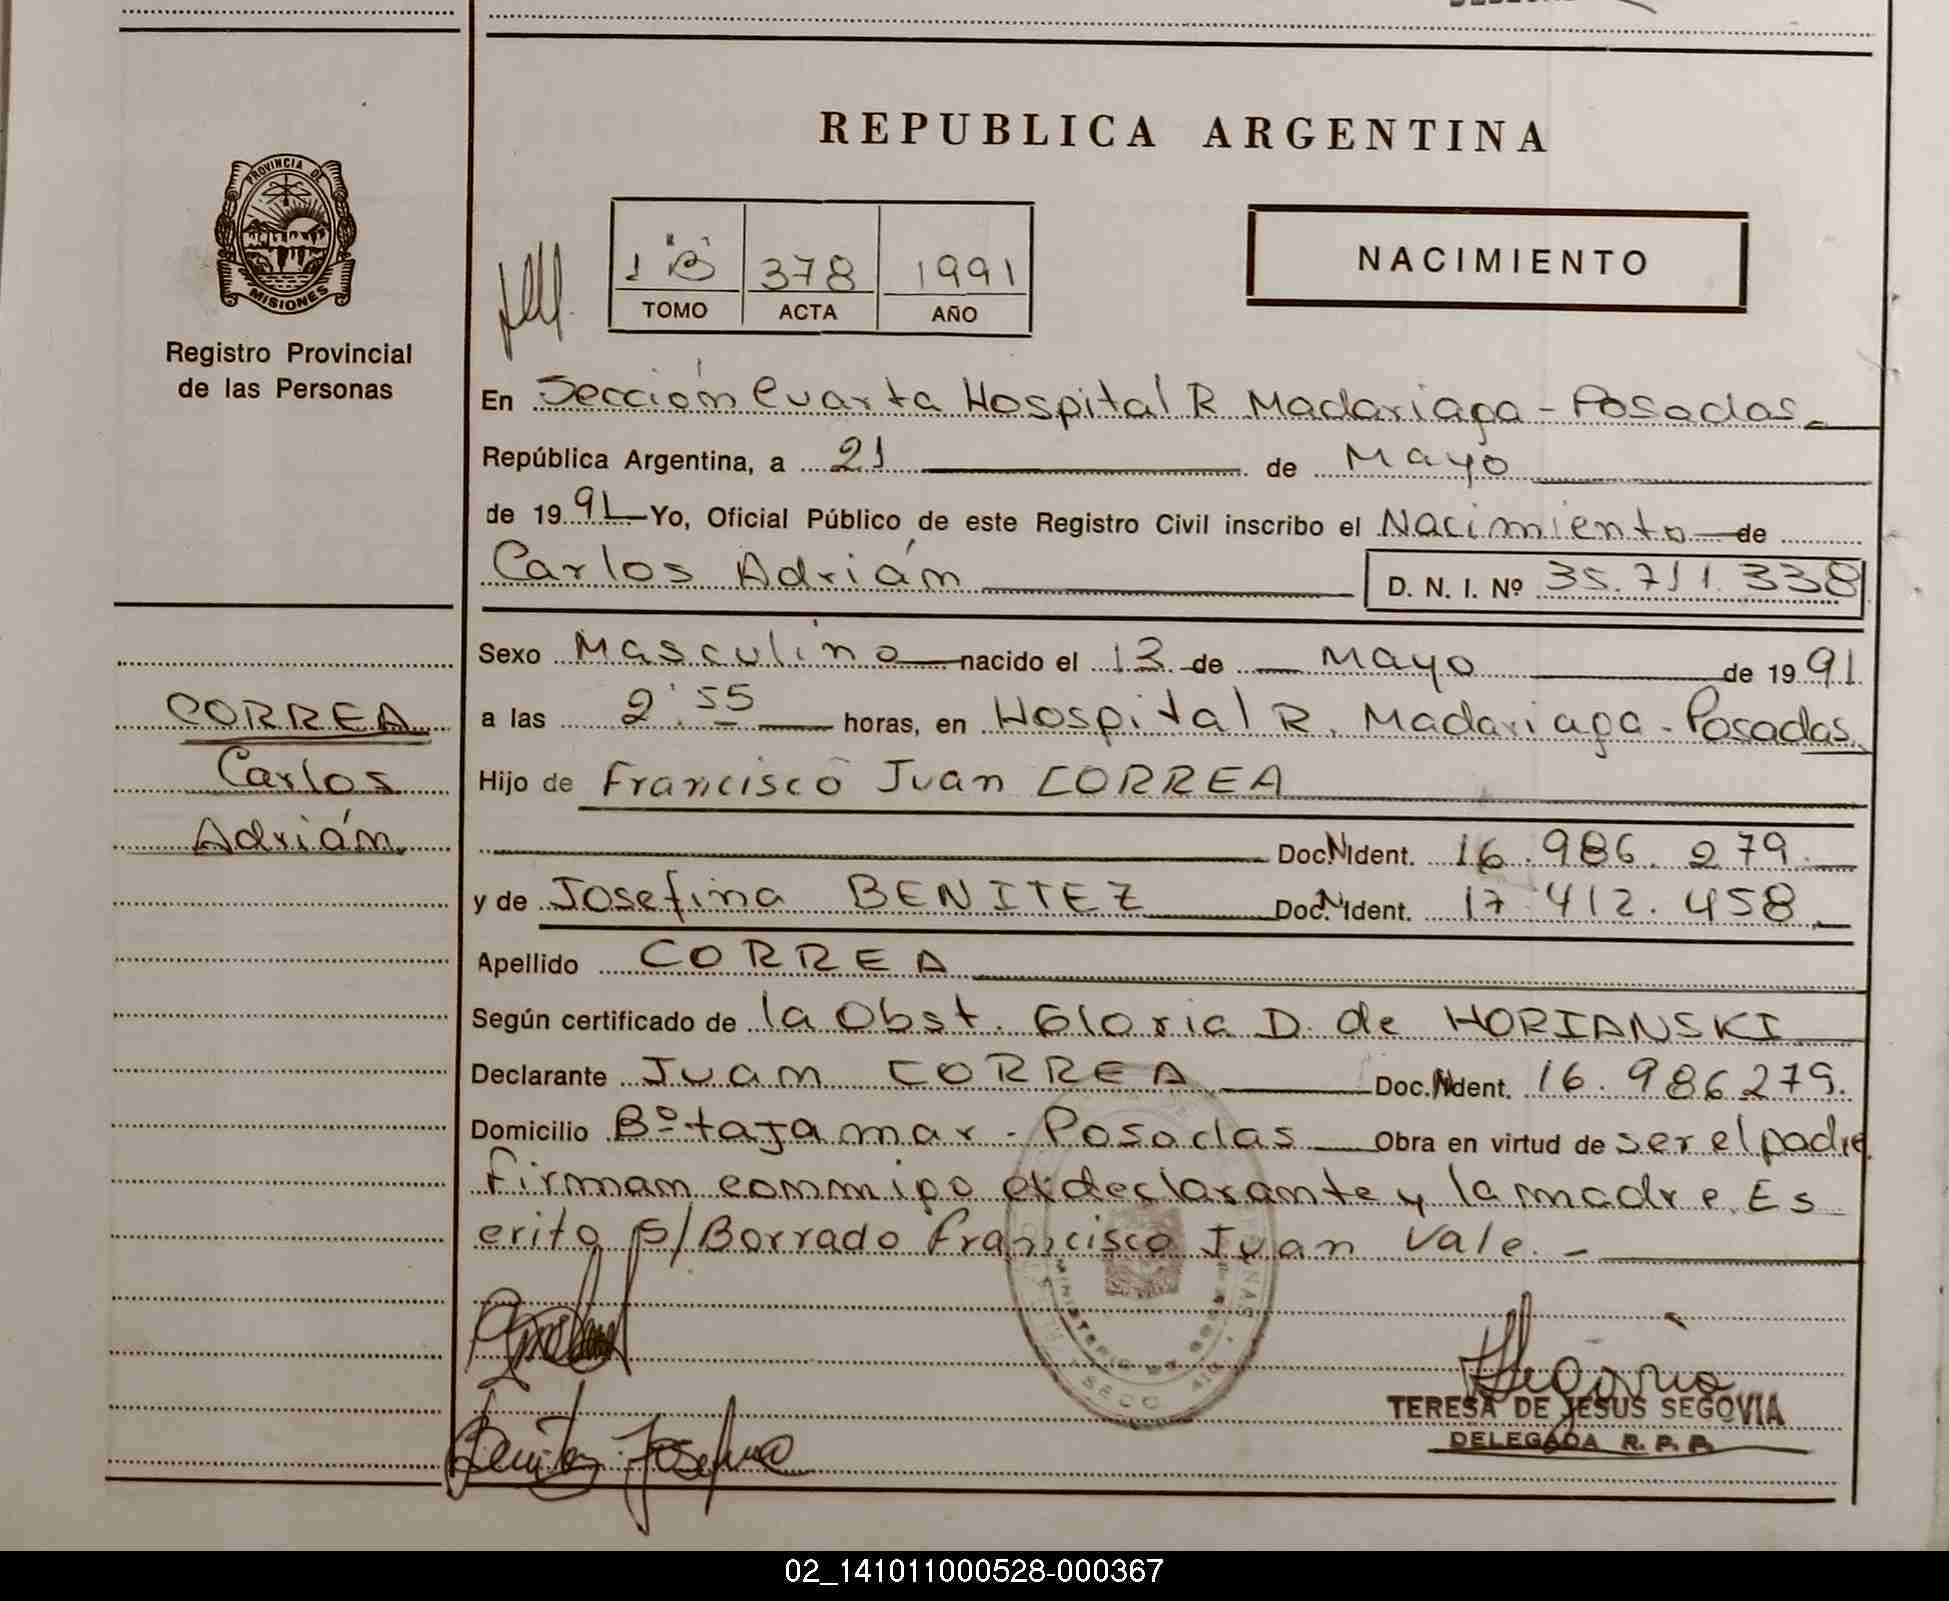 REPUBLICA ARGENTINA
PROVINCIA DE
MISIONES
Registro Provincial
de las Personas
1 "B" 378 1991
TOMO ACTA AÑO
NACIMIENTO
En Sección Cuarta Hospital R Madariaga - Posadas
República Argentina, a 21 de Mayo
de 1991 Yo, Oficial Público de este Registro Civil inscribo el Nacimiento de
Carlos Adrián D. N. I. Nº 35.711.338
Sexo Masculino nacido el 13 de Mayo de 1991
a las 2:55 horas, en Hospital R. Madariaga - Posadas
Hijo de Francisco Juan CORREA
Doc.N.Ident. 16.986.279
y de Josefina BENITEZ Doc.N.Ident. 17.412.458
Apellido CORREA
Según certificado de la Obst. Gloria D. de HORIANSKI
Declarante Juan CORREA Doc.N.Ident. 16.986279.
Domicilio Bº tajamar - Posadas Obra en virtud de ser el padre
firman conmigo el declarante y la madre. Es
crito s/Borrado Francisco Juan Vale. -
CORREA
Carlos
Adrián
Benitez Josefina
Segovia
TERESA DE JESUS SEGOVIA
DELEGADA R. P. P.
SECC 4ta
02_141011000528-000367